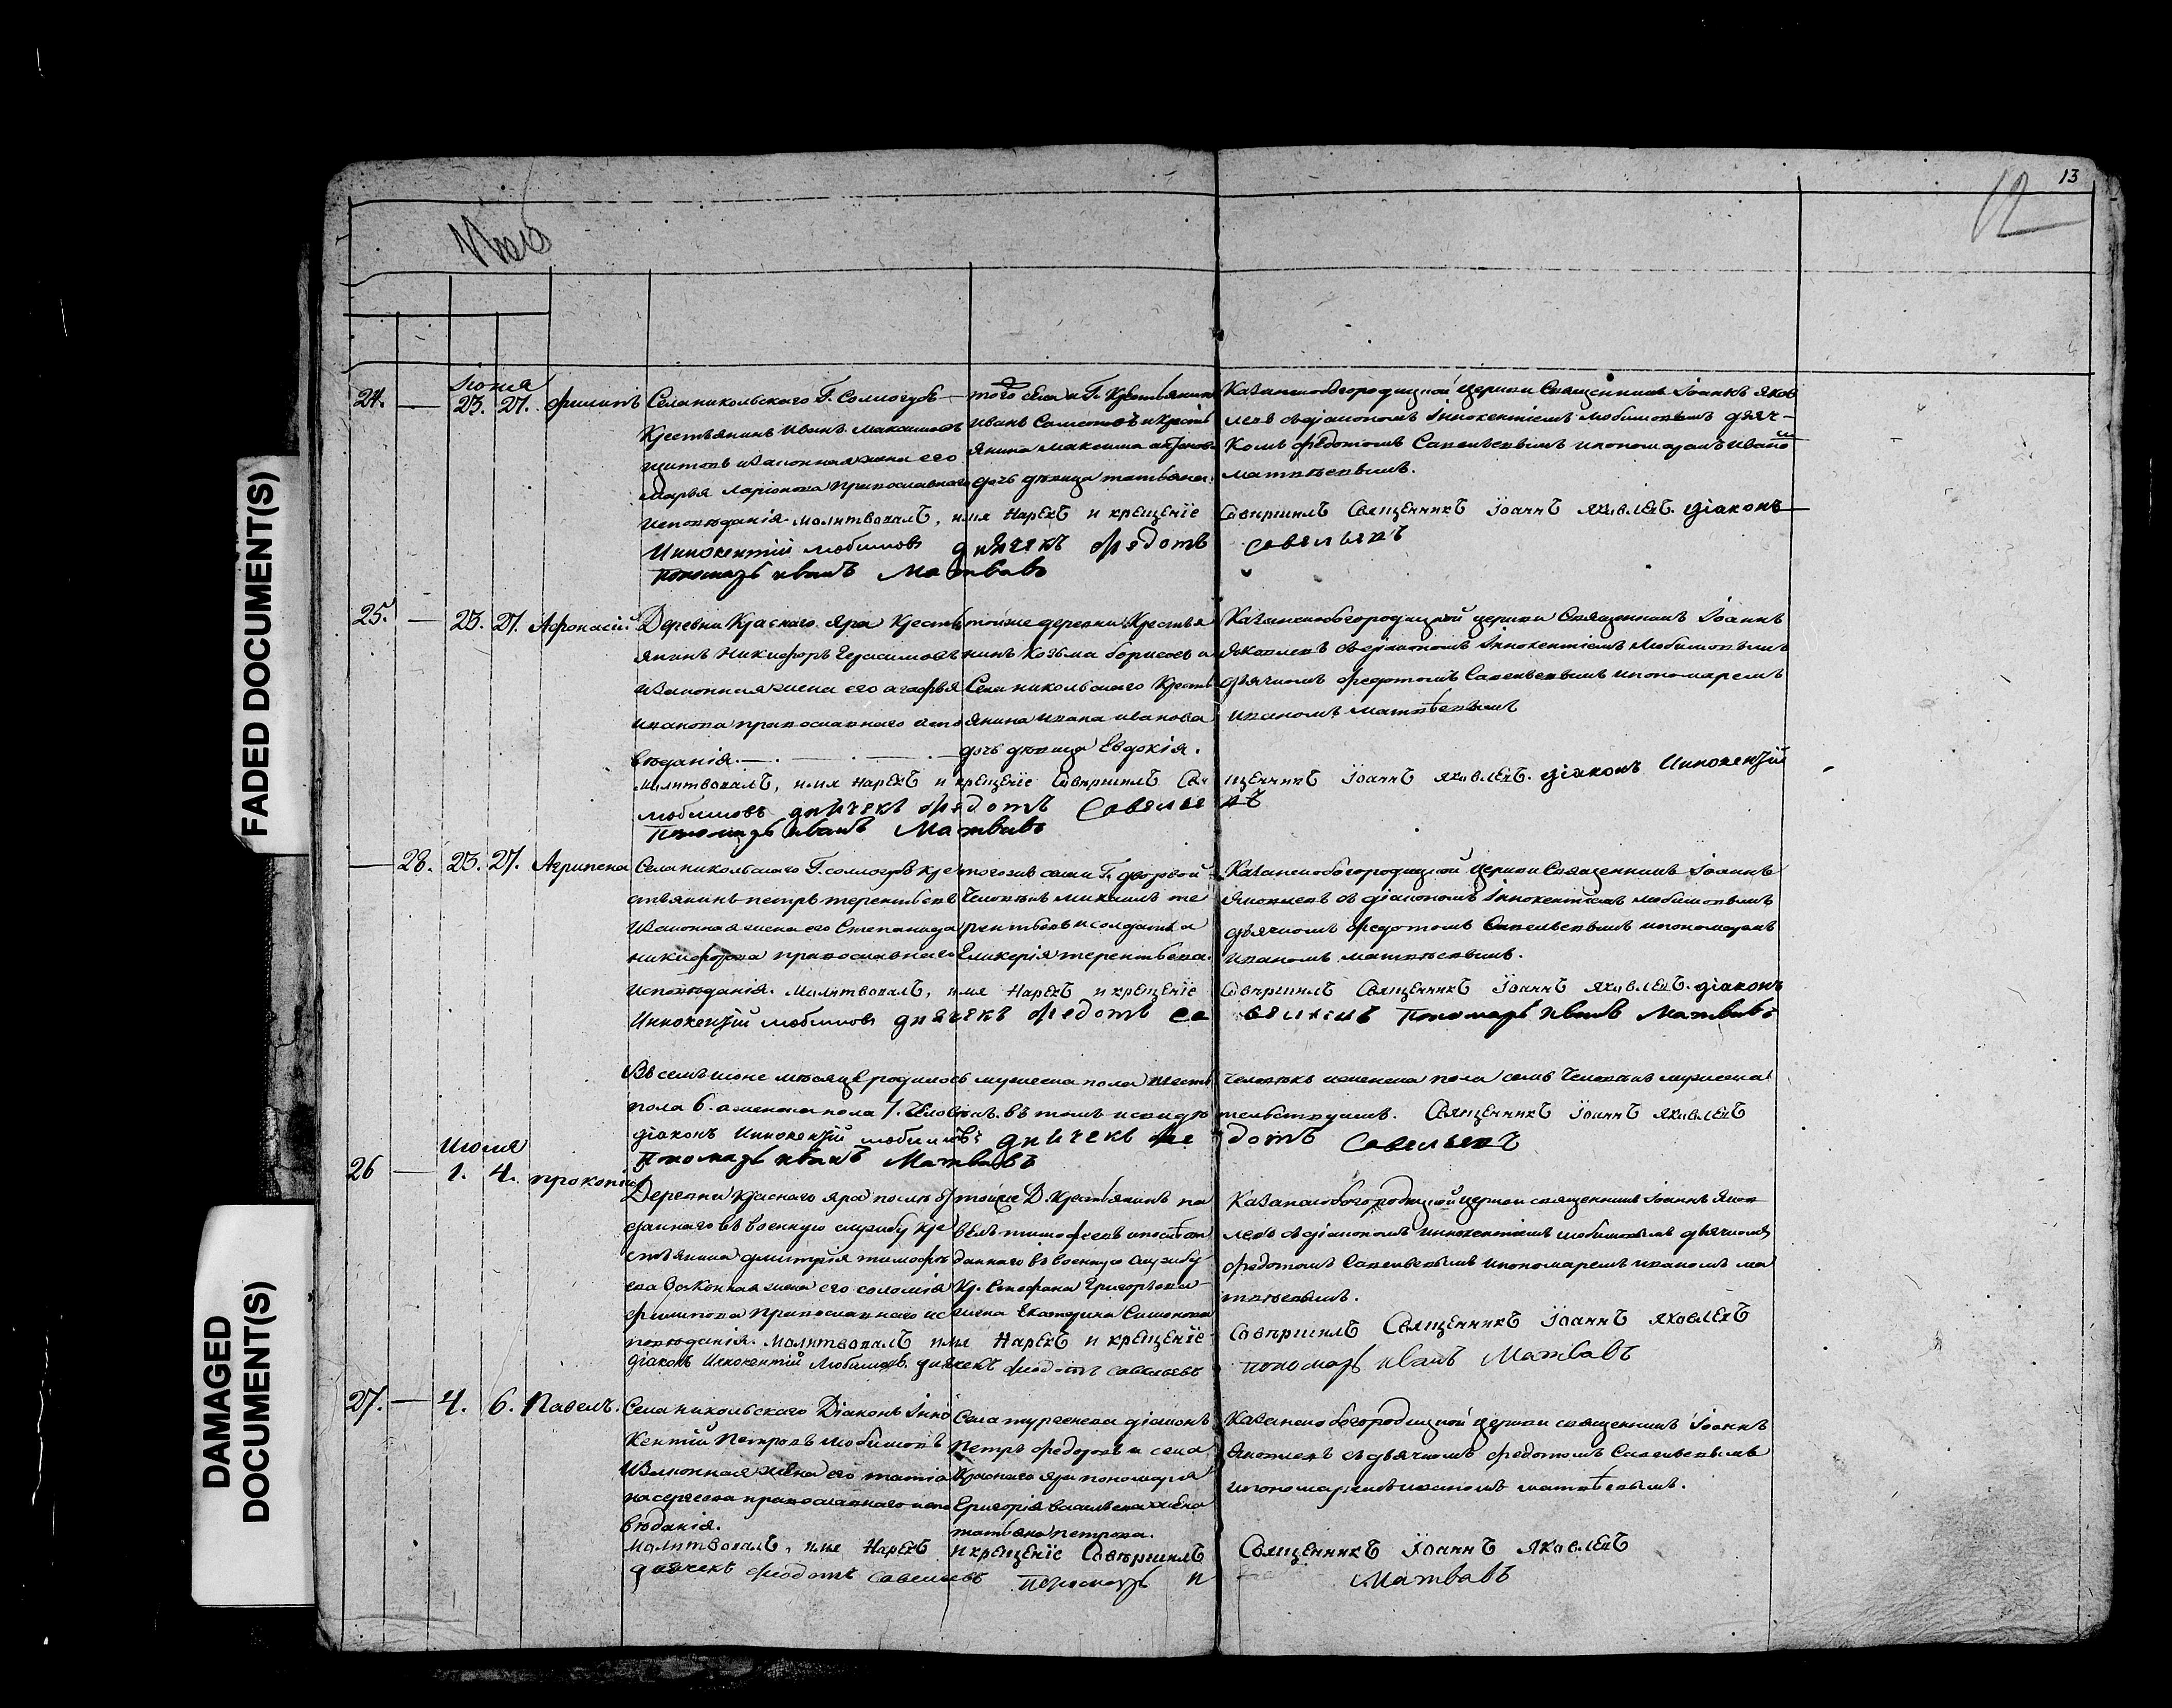 13
12
Июль
FADED DOCUMENT(S)
DAMAGED DOCUMENT(S)
Іюня
24. — 23. 27. Филипъ
Села никольскаго Г. Сологубъ
Крестьянинъ Иванъ Максимовъ
законная жена его
Марья Ларіонова Православнаго
Исповѣданія
того села и Г. Крестьянинъ
Иванъ и Кресть
янина Максима
дочь дѣвица татьяна.
Казанскобогородицкой церкви Священникъ Іоаннъ Яков
левъ съ діакономъ Іннокентіемъ Любимовымъ дьяч-
комъ Федотомъ Савельевымъ и пономаремъ Ивано
матвѣевымъ.
Молитвовалъ, имя Нарекъ и крещеніе Совершилъ Священникъ Іоаннъ Яковлевъ. діаконъ
Иннокентій любимовъ дьячекъ Федотъ Савельевъ
Пономарь иванъ Матвѣвъ
25. — 23. 27. Афонасій
Деревни Краснаго яра Кресть
янинъ Никифоръ Герасимовъ
законная жена его агафья
иванова православнаго испо
вѣданія.
тойже деревни Крестья
нинъ Козьма борисовъ и
Села никольскаго Кресть
янина ивана иванова
дочь дѣвица Евдокія.
Казанскобогородицкой церкви Священникъ Іоаннъ
Яковлевъ съ діакономъ Іннокентіемъ Любимовымъ
дьячкомъ Федотомъ Савельевымъ и пономаремъ
иваномъ Матвѣевымъ
Молитвовалъ, имя Нарекъ и крещеніе Совершилъ Священникъ Іоаннъ Яковлевъ. діаконъ Иннокентій
любимовъ дьячекъ Федотъ Савельевъ
Пономарь иванъ Матвѣвъ
— 28. 23. 27. Агрипена
Села никольскаго Г. сологубъ кре
стьянинъ петръ терентьевъ
законная жена его Степанида
никифорова православнаго
Исповѣданія.
тогожъ села и Г. дворовой
Человѣкъ михаилъ те
рентьевъ и солдатка
Гликерія терентьева.
Казанскобогородицкой церкви Священникъ Іоаннъ
Яковлевъ съ діакономъ Іннокентіемъ любимовымъ
дьячкомъ Федотомъ Савельевымъ и пономаремъ
Иваномъ матвѣевымъ.
Молитвовалъ, имя Нарекъ и крещеніе Совершилъ Священникъ Іоаннъ Яковлевъ. діаконъ
Иннокентій любимовъ дьячекъ Федотъ Савельевъ Пономарь иванъ Матвѣвъ
Въ семъ іюне мѣсяцѣ родилось мужеска пола шесть человѣкъ и женска пола семь Человѣкъ мужеска
пола 6. а женска пола 7. Человѣкъ. въ томъ и свидѣтельствуемъ. Священникъ Іоаннъ Яковлевъ
діаконъ Иннокентій любимовъ дьячекъ Федотъ Савельевъ
Пономарь иванъ Матвѣвъ
Июля
26 — 1. 4. прокопій
Деревни Краснаго яра послѣ от
даннаго въ военную службу кре
стьянина дмитрія тимофѣ
ева Законная жена его соломія
филипова Православнаго ис
повѣданія.
тойже Д. крестьянинъ па
велъ тимофеевъ и послѣ от
даннаго въ военную службу
Кр. Стефана Григорьева
жена Екатерина Симонова
Казанскобогородицкой церкви священникъ Іоаннъ Яков
левъ съ діакономъ иннокентіемъ любимовымъ дьячкомъ
Федотомъ Савельевымъ и пономаремъ иваномъ ма
твѣевымъ.
Молитвовалъ имя Нарекъ и крещеніе Совершилъ Священникъ Іоаннъ Яковлевъ
діаконъ Иннокентій Любимовъ. дьячекъ Феодотъ Савельевъ Пономарь иванъ Матвѣвъ
27. — 4. 6. Павелъ.
Села никольскаго Діаконъ Інно
кентій Петровъ любимовъ
Законная жена его татіа
на сергеева православнаго испо
вѣданія.
Села тургенева діаконъ
Петръ Федоровъ и села
Краснаго яра пономаря
Григорія васильева жена
татьяна петрова.
Казанскобогородицкой церкви священникъ Іоаннъ
Яковлевъ съ дьячкомъ Федотомъ Савельевымъ
и пономаремъ иваномъ матвѣевымъ.
Молитвовалъ, имя Нарекъ и крещеніе Совершилъ Священникъ Іоаннъ Яковлевъ
дьячекъ Феодотъ Савельевъ Пономарь и Матвѣвъ